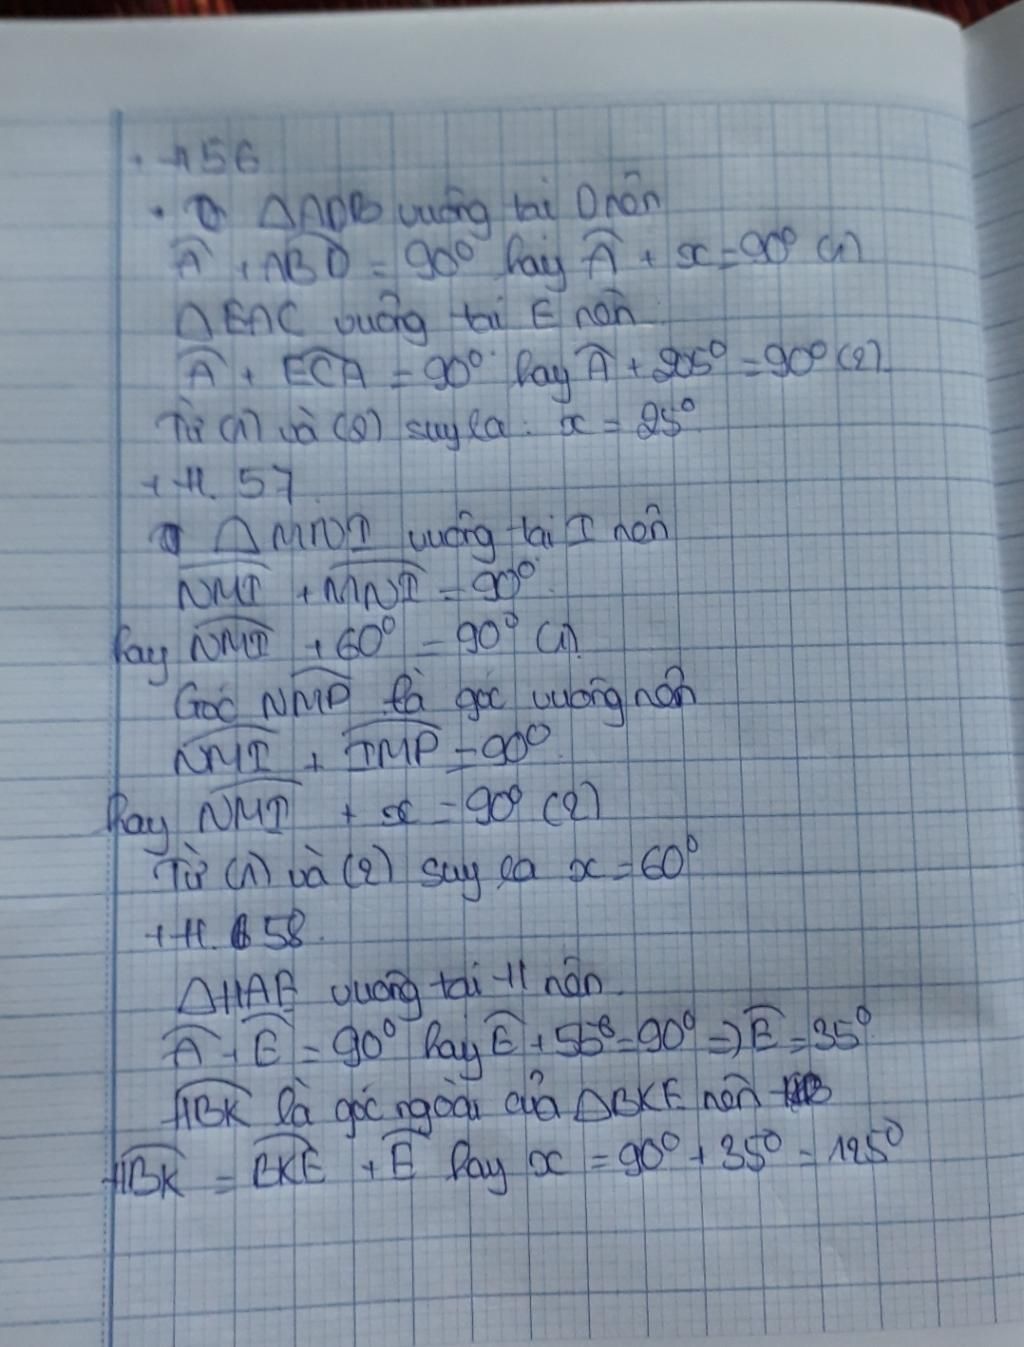 + H 56
• ΔADB vuông tại D nên
Â + ABD̂ = 90⁰ hay Â + x = 90⁰ (1)
ΔEAC vuông tại E nên
Â + ECÂ = 90⁰ hay Â + 25⁰ = 90⁰ (2)
Từ (1) và (2) suy ra: x = 25⁰
+ H. 57
ΔMNI vuông tại I nên
NMI + MNI = 90⁰
hay NMI + 60⁰ = 90⁰ (1)
Góc NMP là góc vuông nên
NMI + IMP = 90⁰
hay NMI + x = 90⁰ (2)
Từ (1) và (2) suy ra x = 60⁰
+ H. 58
ΔHAE vuông tại H nên
Â + Ê = 90⁰ hay Ê + 55⁰ = 90⁰ => Ê = 35⁰
HBK là góc ngoài của ΔBKE nên
HBK = BKE + Ê hay x = 90⁰ + 35⁰ = 125⁰